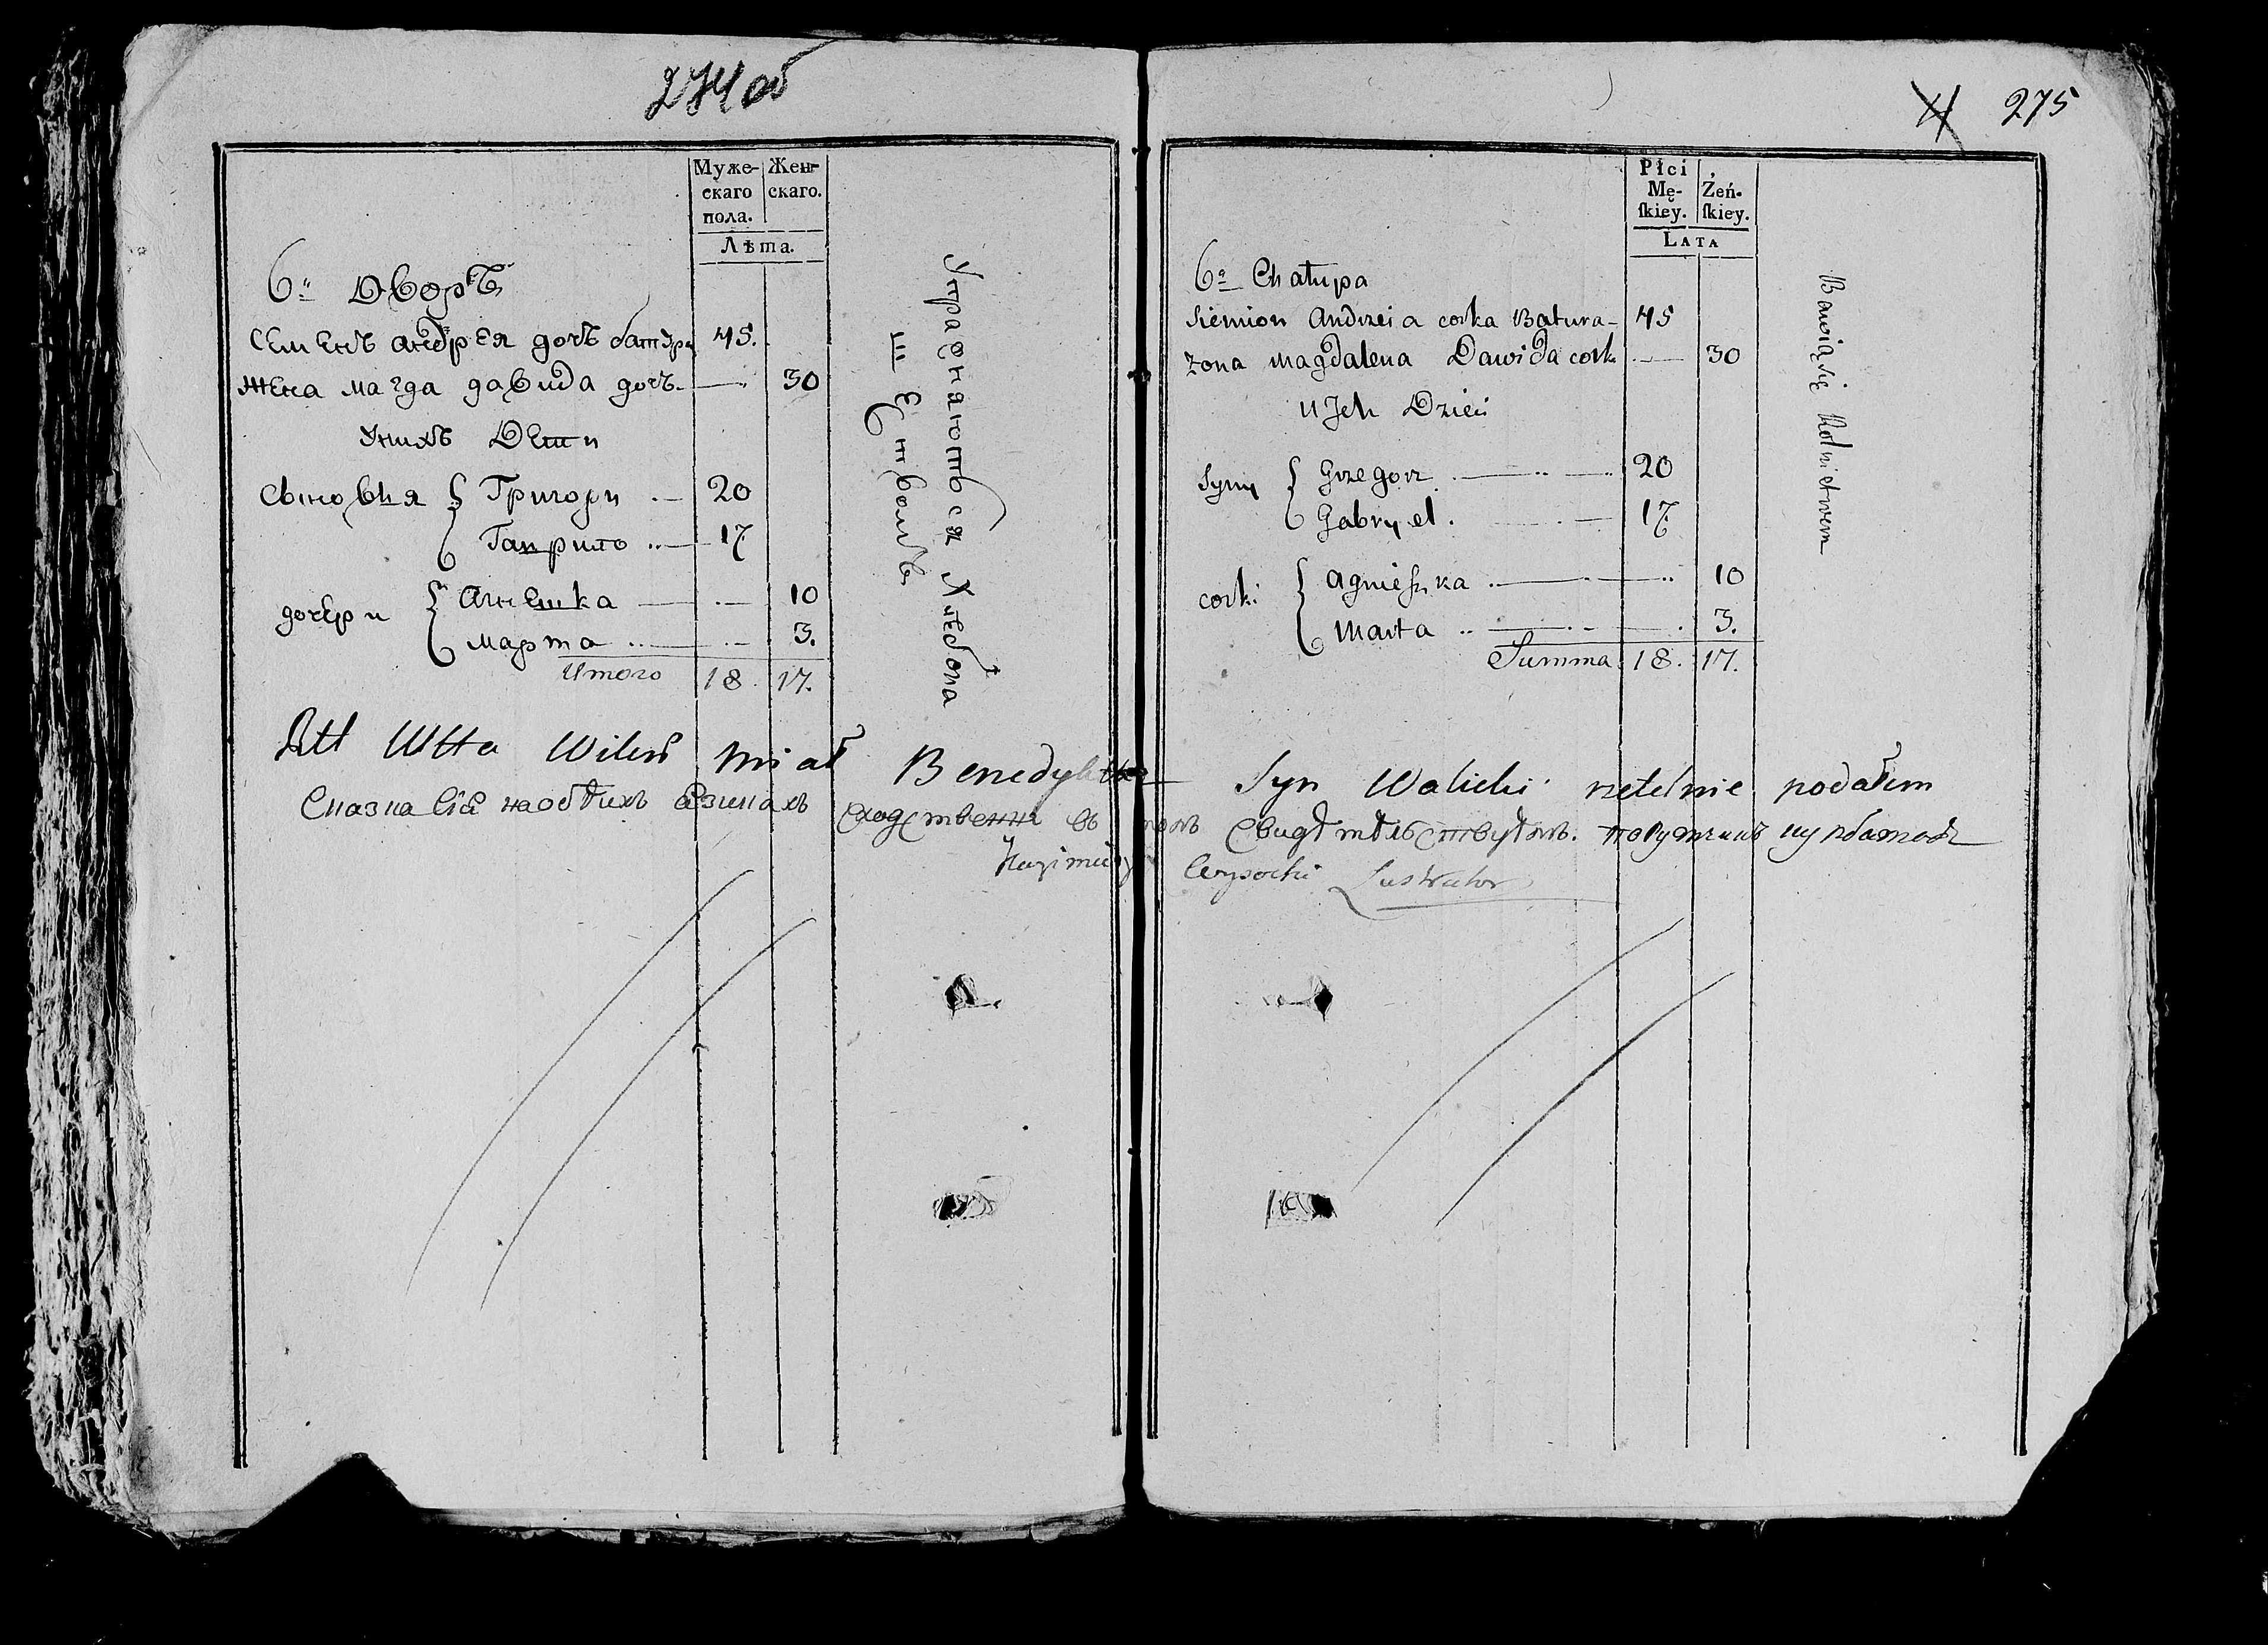 274 об
Муже-
скаго
пола.
Жен-
скаго.
Лѣта.
6й Дворъ
Семенъ андрея дочъ батура 45.
Жена магда давида дочъ 30
Унихъ Дети
Сыновья { Григори 20
Гаприло 17
дочери { Агнешка 10
марта 3.
Итого 18. 17.
Упражняються Хлебопа
шествомъ
275
Płci
Mę-
skiey.
Żeń-
skiey.
Lata
6a Chałupa
Siemion Andrzeia corka Batura 45
Zona Magdalena Dawida cork 30
u Jch Dzieci
Syny { Grzegorz 20
Gabryel. 17
cork: { Agnieszka 10
Marta 3.
Summa 18. 17.
Bawią się Rolnictwem
Benedykta Syn Walicki rzetelnie podałem
на обѣихъ сходственна въ томъ Свидѣтельствуемъ.
Kazimierz Wysocki Lustrator